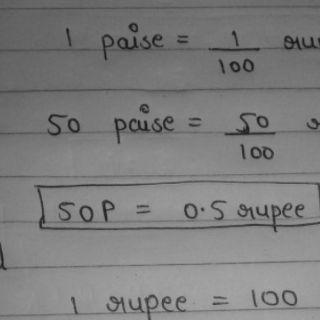 1 paise = 1/100
50 paise = 50/100
50P = 0.5 rupee
1 rupee = 100